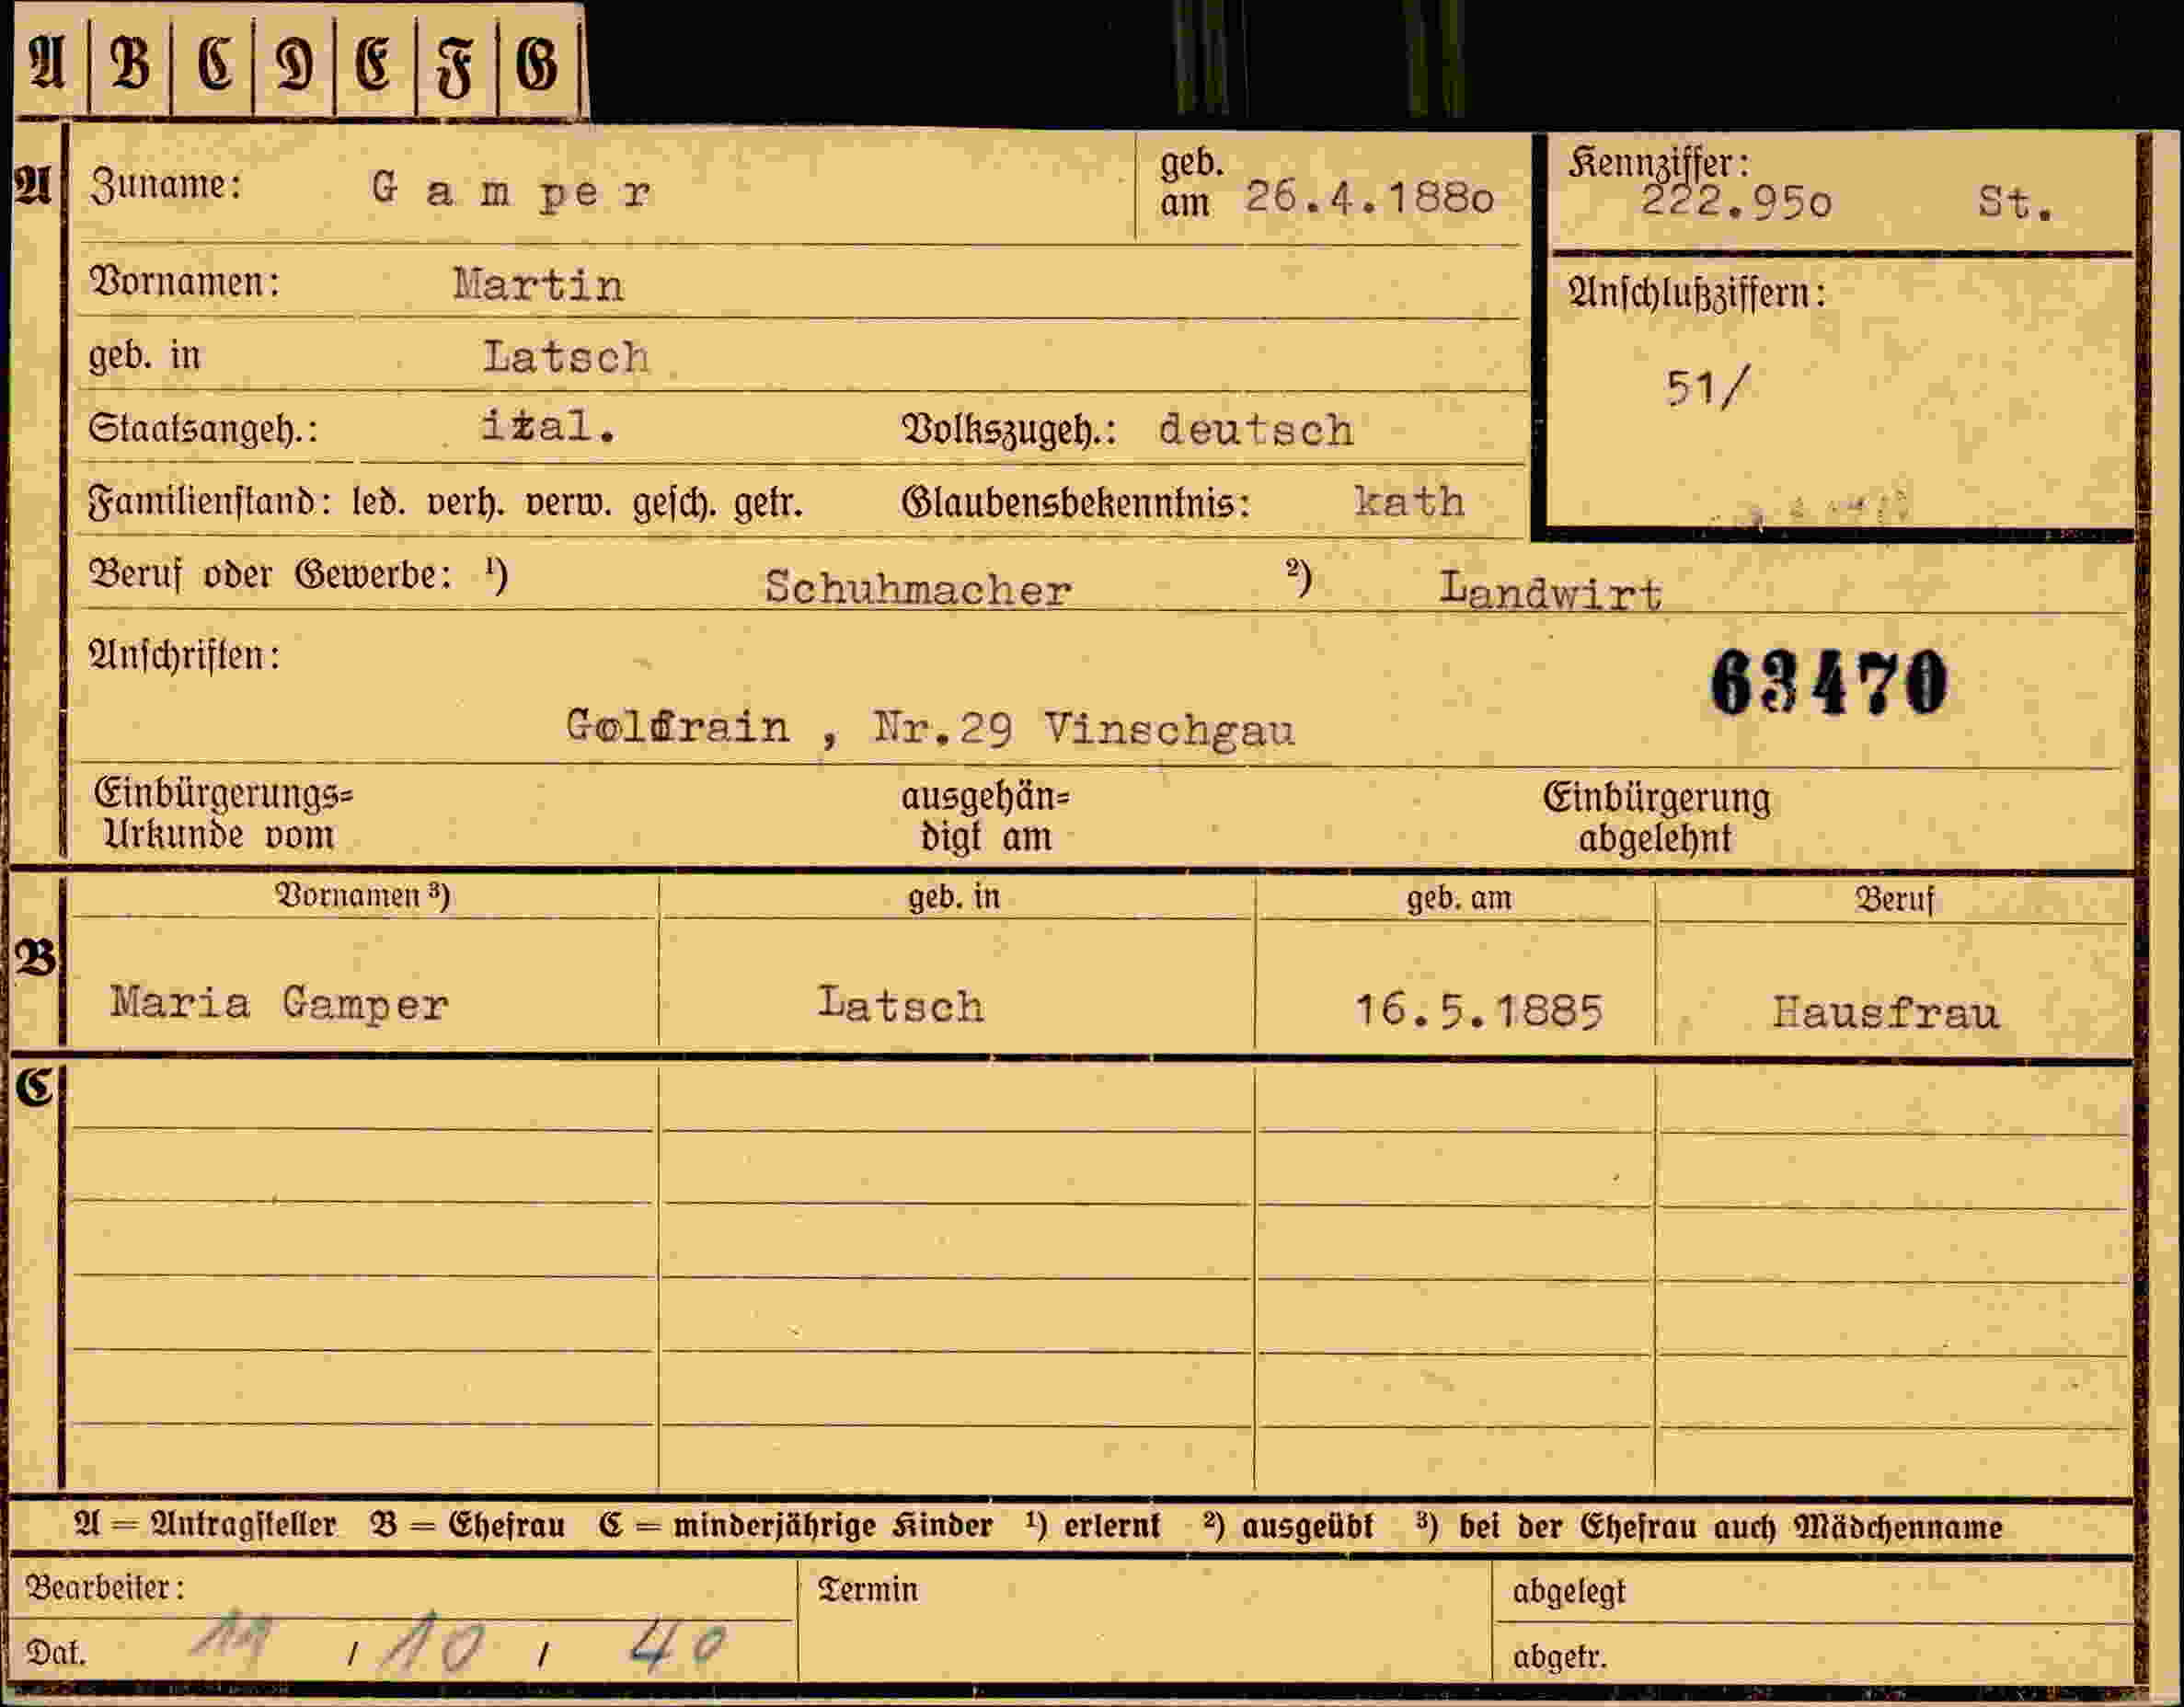 A B C D E F G
A Zuname: Gamper geb. am 26.4.1880 Kennziffer: 222.950 St.
Vornamen: Martin
Anschlußziffern:
geb. in Latsch
51/
Staatsangeh.: ital. Volkszugeh.: deutsch
Familienstand: led. verh. verw. gesch. getr. Glaubensbekenntnis: kath
Beruf oder Gewerbe: ¹) Schuhmacher ²) Landwirt
Anschriften:
63470
Goldrain , Nr.29 Vinschgau
Einbürgerungs= ausgehän= Einbürgerung
Urkunde vom digt am abgelehnt
Vornamen ³) geb. in geb. am Beruf
B
Maria Gamper Latsch 16.5.1885 Hausfrau
C
A = Antragsteller B = Ehefrau C = minderjährige Kinder ¹) erlernt ²) ausgeübt ³) bei der Ehefrau auch Mädchenname
Bearbeiter: Termin abgelegt
Dat. / 10 / 40 abgetr.